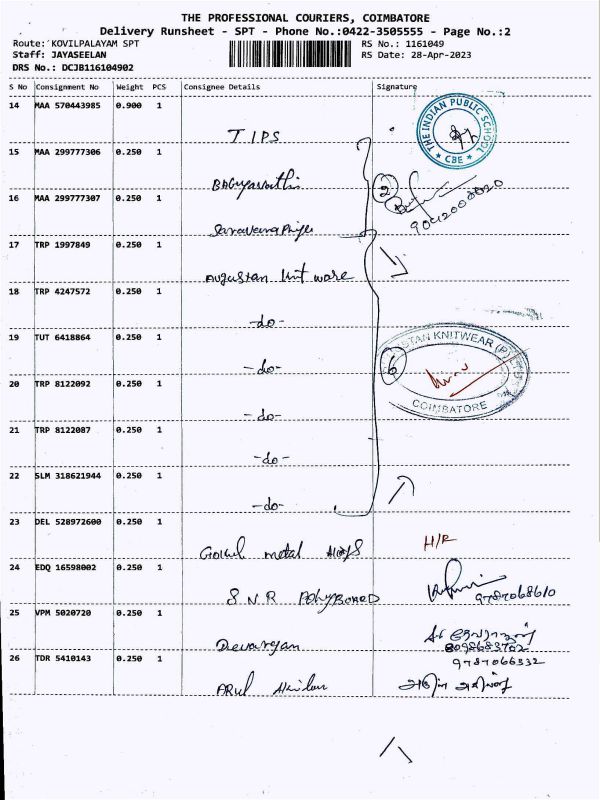 THE PROFESSIONAL COURIERS, COIMBATORE
Delivery Runsheet - SPT - Phone No.:0422-3505555 - Page No.:2
Route: KOVILPALAYAM SPT RS No.: 1161049
Staff: JAYASEELAN RS Date: 28-Apr-2023
DRS No.: DCJB116104902
S No Consignment No Weight PCS Consignee Details Signature
14 MAA 570443985 0.900 1
TIPS
THE INDIAN PUBLIC SCHOOL
* CBE *
15 MAA 299777306 0.250 1
2
16 MAA 299777307 0.250 1
17 TRP 1997849 0.250 1
Augustan knit ware
18 TRP 4247572 0.250 1
-do-
19 TUT 6418864 0.250 1
KNITWEAR (P)
-do-
6
20 TRP 8122092 0.250 1
-do-
COIMBATORE
21 TRP 8122087 0.250 1
-do-
22 SLM 318621944 0.250 1
-do-
23 DEL 528972600 0.250 1
Gokul metal H/R
24 EDQ 16598002 0.250 1
S N R PolyBOARD 9787068610
25 VPM 5020720 0.250 1
Devarajan
8098683702
26 TDR 5410143 0.250 1
9787066332
ARUL